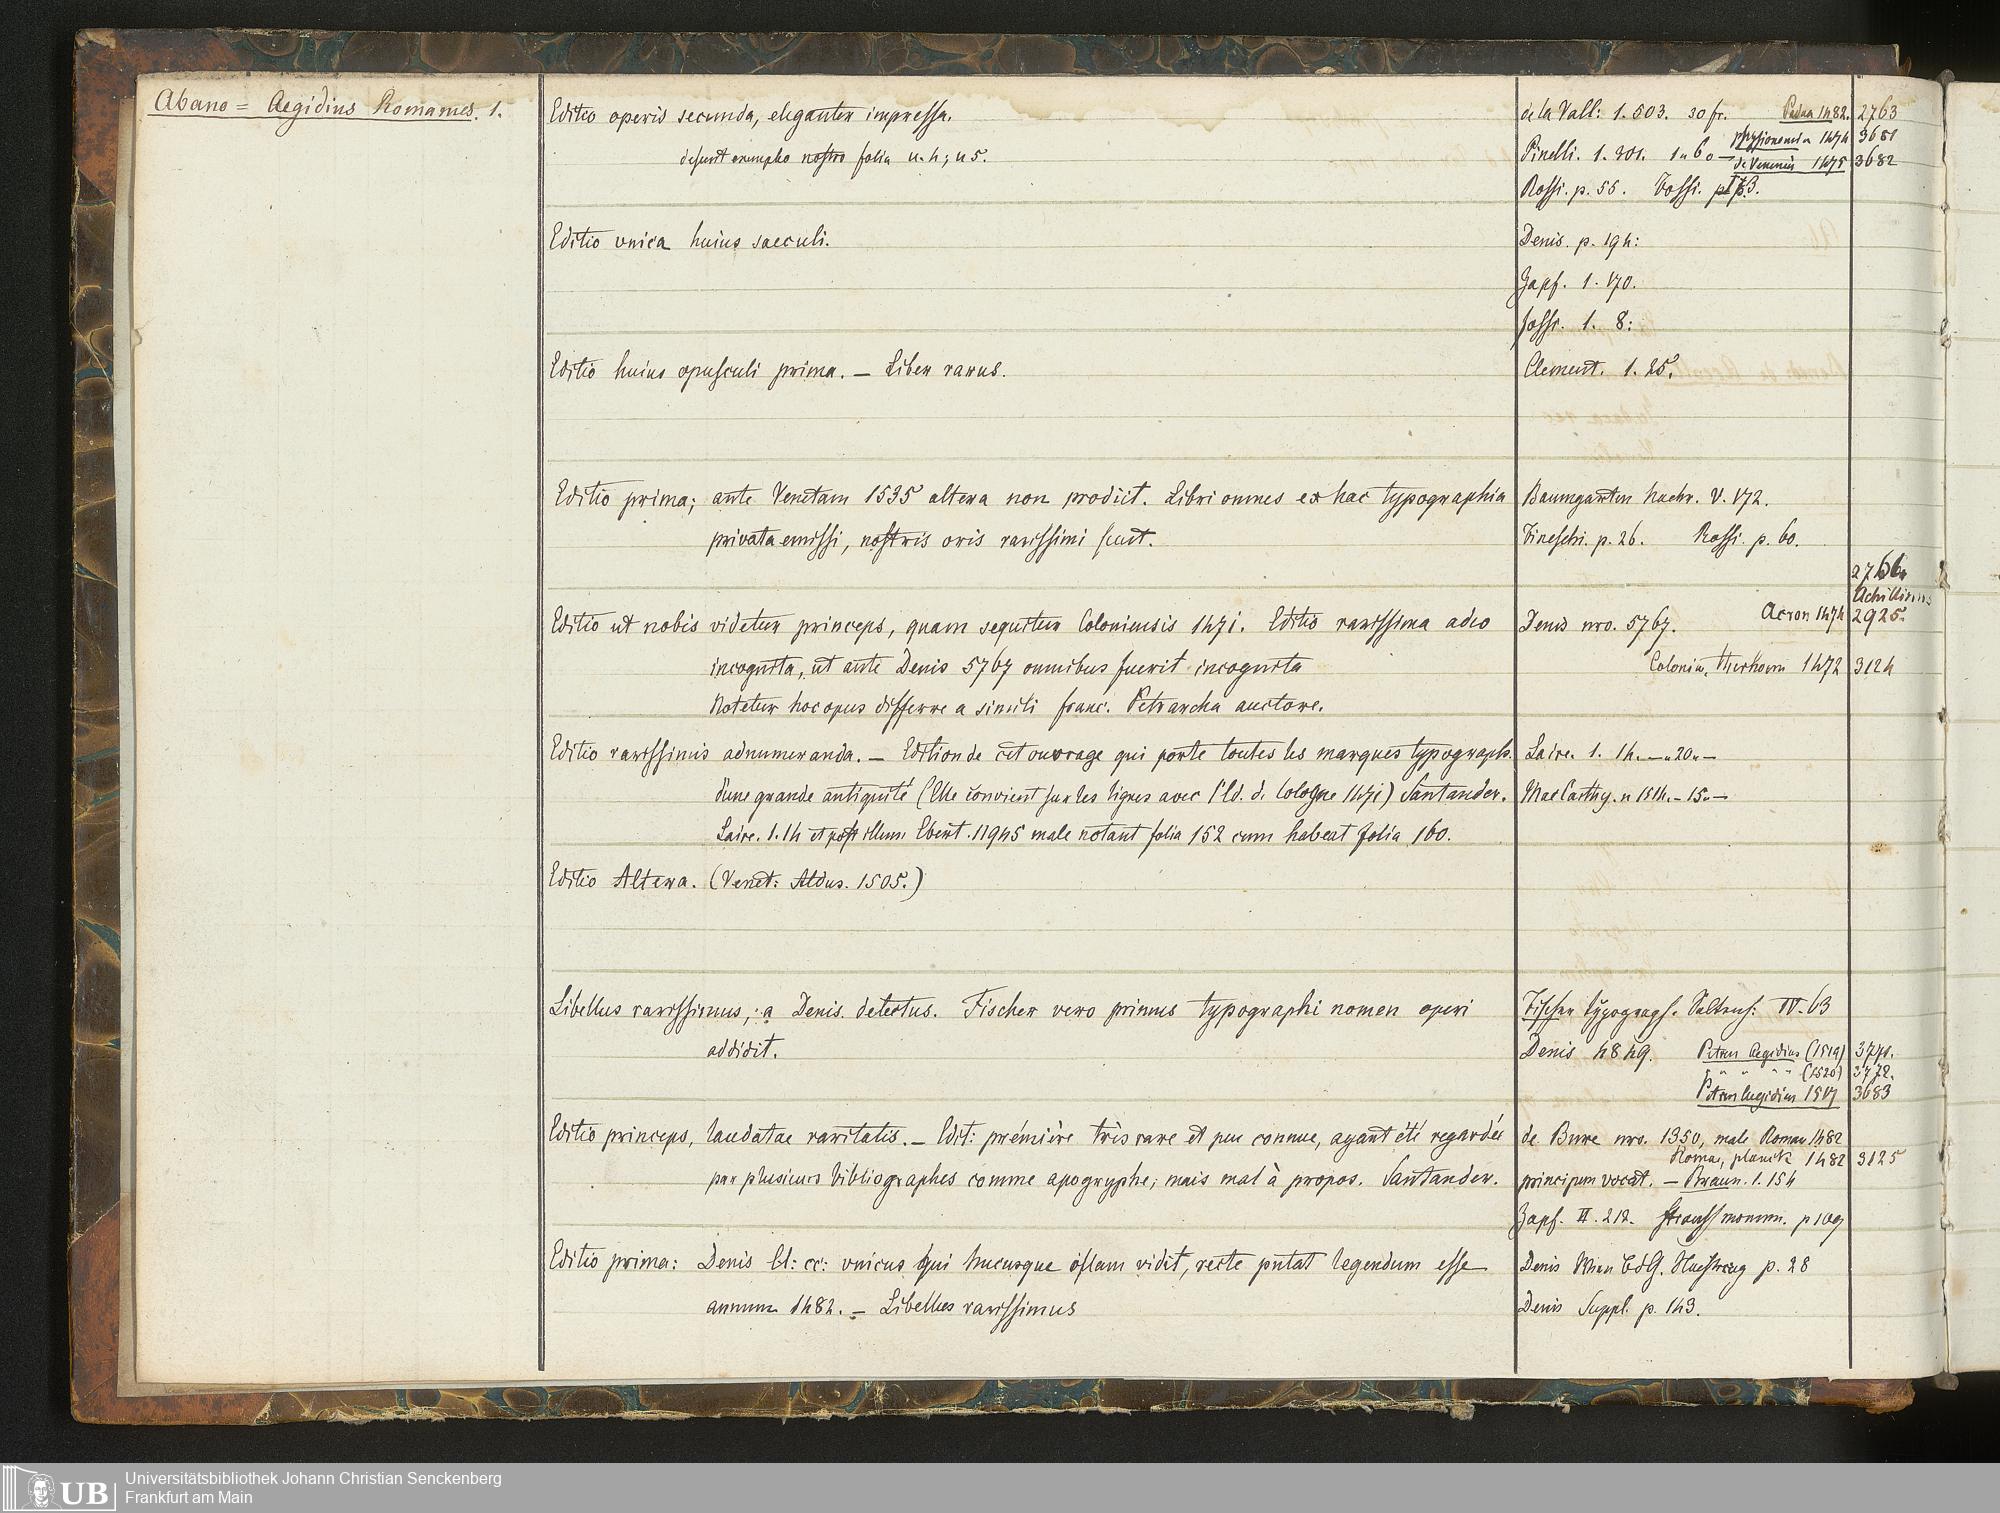 Abano = Aegidius Romanus. 1.
Editio operis secunda, eleganter impressa.
desunt exemplo nostro folia u. 4; u 5.
de la Vall: 1. 503. 30 fr. Padua 1482. 2763
Pinelli. 1. 301. 1 " 6 0 — physionomia 1474 3681
de Venenis 1475 3682
Rossi. p. 55. Fossi. p. 3.
Editio vnica huius saeculi.
Denis. p. 194:
Zapf. 1. 170.
Fossi. 1. 8:
Editio huius opusculi prima. — Liber rarus.
Clement. 1. 25.
Editio prima; ante Venetam 1535 altera non prodiit. Libri omnes ex hac typographia
Baumgarten Nachr. V. 172.
privata emissi, nostris oris rarissimi sunt.
Fineschi. p. 26. Rossi. p. 60.
Achillinus
Editio ut nobis videtur princeps, quam sequitur Coloniensis 1471. Editio rarissima adeo
Denis nro. 5767. Acron 1474 2925.
incognita, ut ante Denis 5767 omnibus fuerit incognita
Colonia, Therhoern 1472 3124
Notetur hoc opus differre a simili franc. Petrarcha auctore.
Editio rarissimis adnumeranda. — Edition de cet ouvrage qui porte toutes les marques typograph.
Laire. 1. 14. — " 20 " —
d'une grande antiquité (Elle convient sur les lignes avec l'Ed. de Cologne 1471) Santander.
MacCarthy. n 1514. - 15 " —
Laire. 1. 14 et post illum Ebert. 11945 male notant folia 152 cum habeat folia 160.
Editio Altera. (Venet: Aldus. 1505.)
Libellus rarissimus, a Denis. detectus. Fischer vero primus typographi nomen operi
Fischer typograph. Seltenh: IV. 63
addidit.
Denis 4849. Petrus Aegidius (1519) 3771.
" " " " (1520) 3772.
Petrus Aegidius 1517 3683
Editio princeps, laudatae raritatis. — Edit: prémière très rare et peu connue, ayant été regardée
de Bure nro. 1350, male Roman 1482
Romae, planck 1482 3125
par plusieurs bibliographes comme apogryphe; mais mal à propos. Santander.
principem vocat. — Braun. 1. 154
Zapf. II. 212. Strauss monum. p 109
Editio prima: Denis Cl: cc: vnicus qui hucusque istam vidit, recte putat legendum esse
Denis Wien B d G. p. 28
annum 1482. — Libellus rarissimus
Denis Suppl. p. 143.
UB
Universitätsbibliothek Johann Christian Senckenberg
Frankfurt am Main